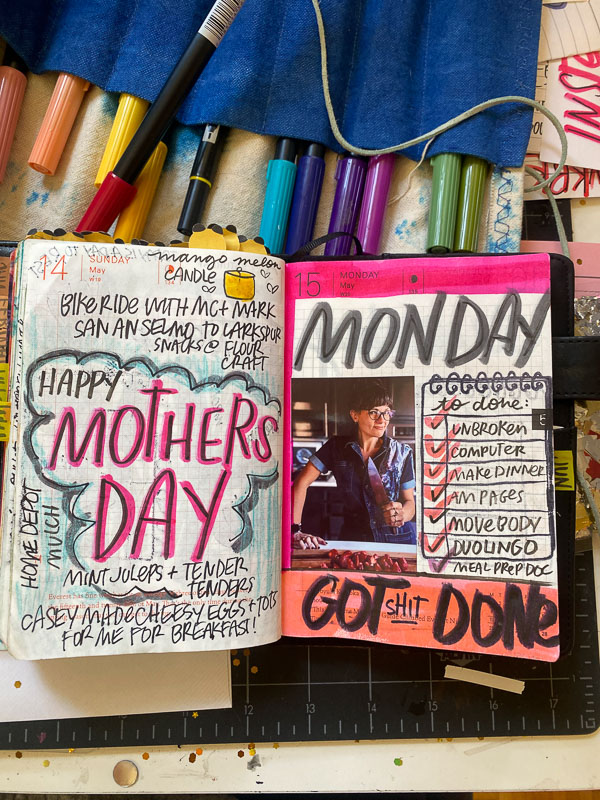 14 SUNDAY
May
mango melon
CANDLE
BIKE RIDE WITH MC + MARK
SAN ANSELMO TO LARKSPUR
SNACKS @ FLOUR
CRAFT
HAPPY
MOTHERS
DAY
HOME DEPOT
MULCH
MINT JULEPS + TENDER
TENDERS
CASEY MADE CHEESY EGGS + TOTS
FOR ME FOR BREAKFAST!
15 MONDAY
May
MONDAY
to done:
UNBROKEN
COMPUTER
MAKE DINNER
AM PAGES
MOVE BODY
DUOLINGO
MEAL PREP DOC
5
GOT SHIT DONE
11
12
13
14
15
16
17